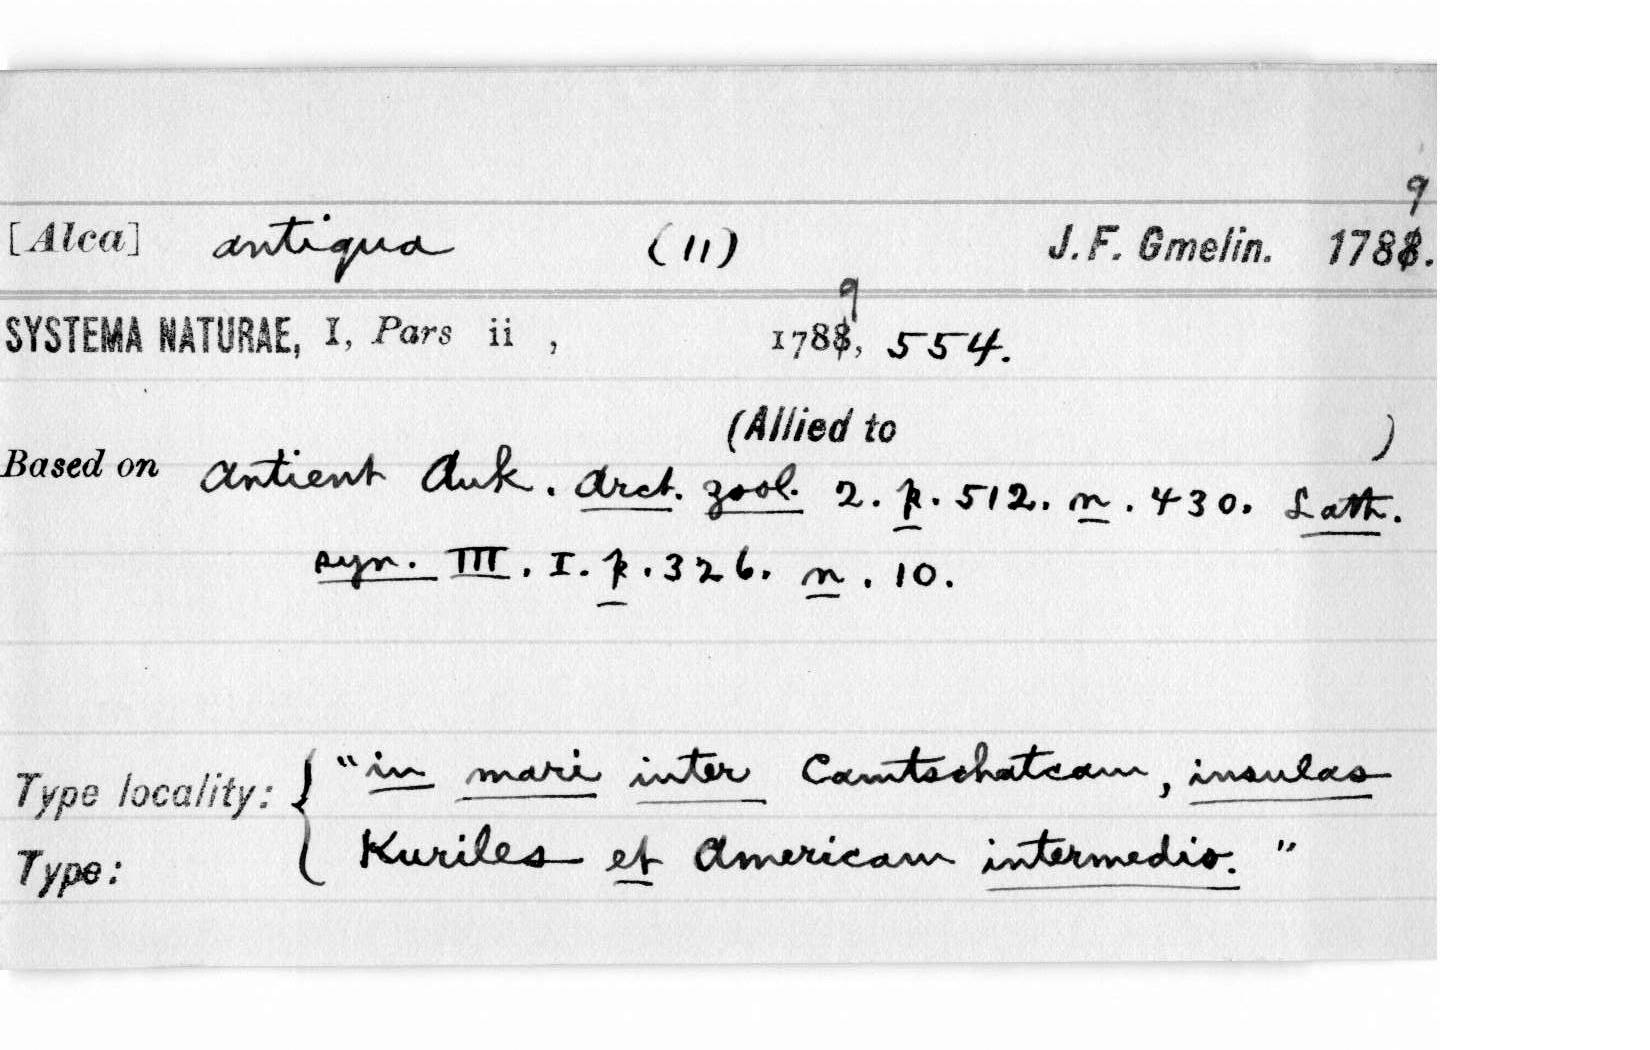 [Alca] antiqua (11) J. F. Gmelin. 1788. 9
SYSTEMA NATURAE, I, Pars ii , 1788, 9 554.
(Allied to )
Based on Antient Auk. Arct. zool. 2. p. 512. n. 430. Lath.
syn. III. I. p. 326. n. 10.
Type locality: { "in mari inter Camtschatcam, insulas
Type: Kuriles et Americam intermedio."